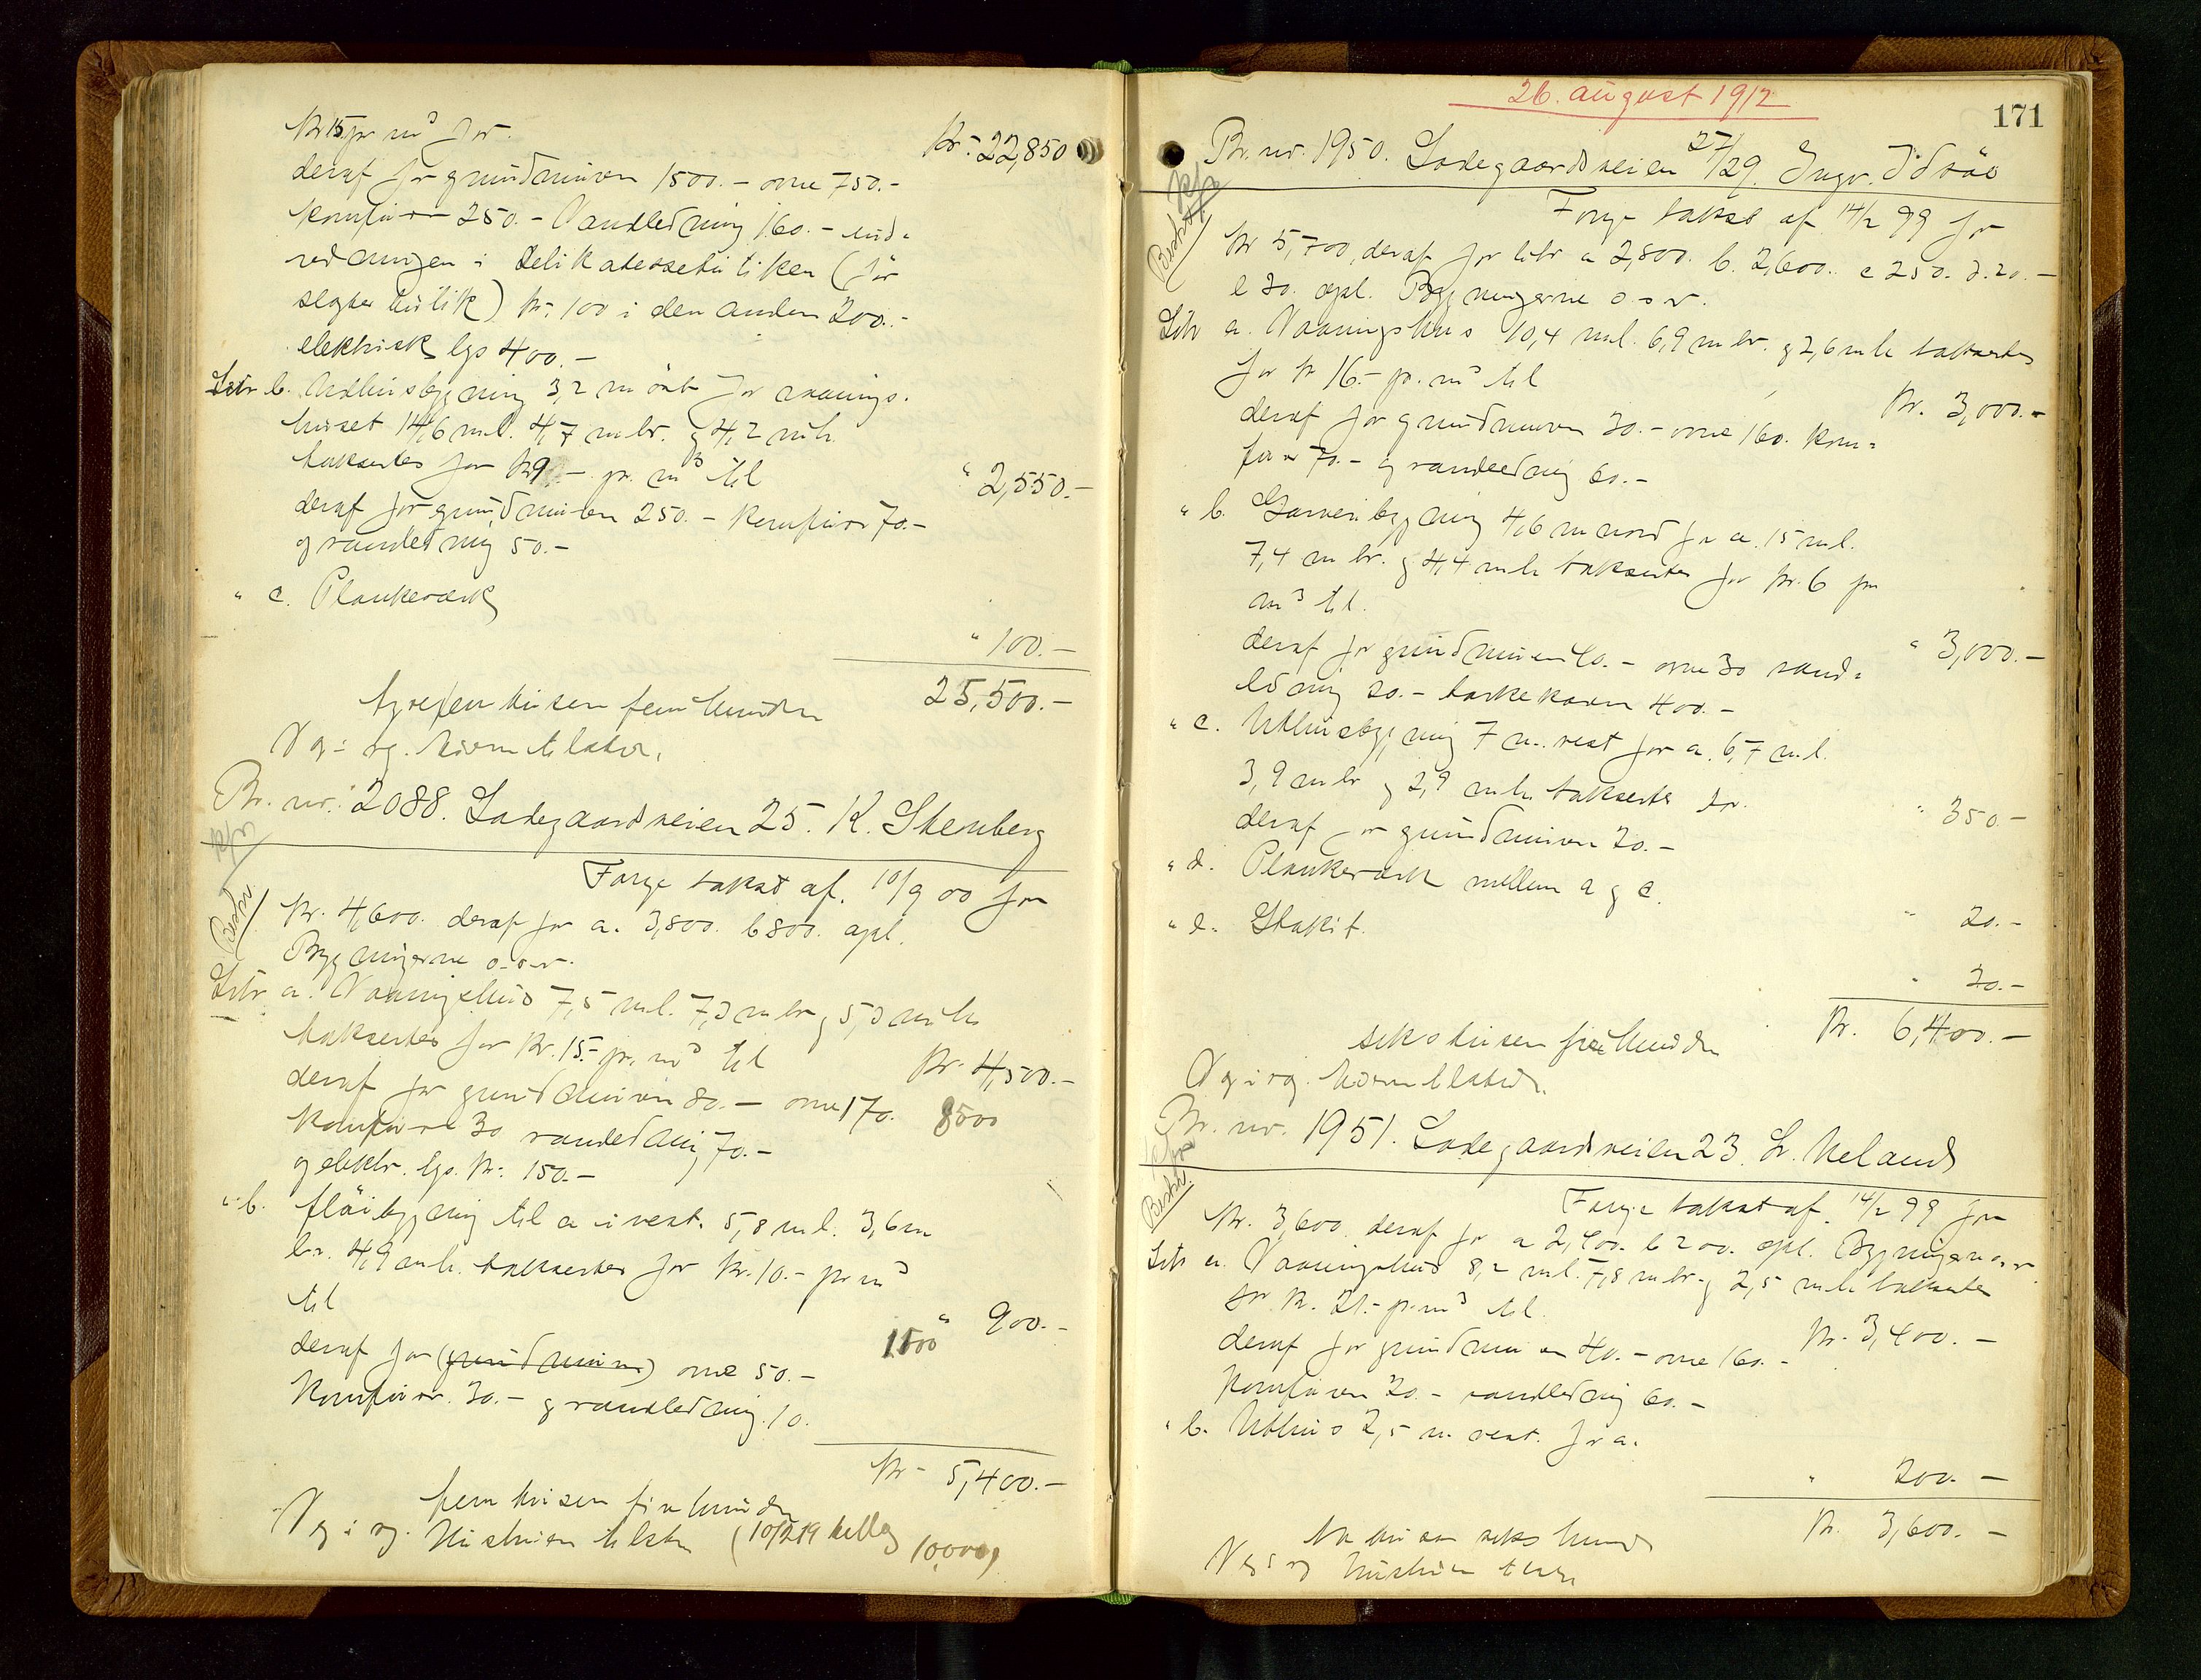 Kr 15 pr m³ for
Kr. 22,850
deraf for grundmuren 1500.- ovne 750.-
komfurer 250.- Vandledning 160.- ind-
redningen i delikatessebutiken (før
slagter butik) Kr. 100 i den anden 200.-
elektrisk lys 400.-
Litr b. Udhusbygning 3,2 m øst for vaanings-
huset 14,6 m l. 4,7 m br. og 4,2 m h.
takseres for Kr 9.- pr. m³ til
" 2,550.-
deraf for grundmuren 250.- komfurer 70.-
og vandledning 50.-
" c. Plankeværk
" 100.-
25,500.-
tyvefem tusen fem hundre
V og i rg. Hvorom tilatør.
Br. nr. 2088. Ladegaardsveien 25. K. Stenberg
Forrige takst af. 10/9 00 for
Kr. 4,600. deraf for a. 3,800. b 800. opl.
Bygningerne o.s.v.
Litr a. Vaaningshus 7,5 m l. 7,3 m br og 5,3 m h
takseres for Kr. 15.- pr. m³ til
Kr. 4,500.-
deraf for grundmuren 80.- ovne 170.
8500
komfurer 30 vandledning 70.-
og elektr. lys. Kr. 150.-
" b. fløibygning til a i vest. 5,8 m l. 3,6 m
br. 4,9 m h. takseres for Kr. 10.- pr m³
til
1500 " 900.-
deraf for (grundmuren) ovne 50.-
Komfurer. 30.- og vandledning. 10.
Kr. 5,400.-
fem tusen fire hundre
V og i rg.
(10/2 19 tillæg 10,000)
26. august 1912
171
Br. nr. 1950. Ladegaardsveien 27/29. Ingv. Idsøe
Forrige takst af 14/2 99 for
Kr 5,700, deraf for litr a 2,800. b. 2,600. c 250. d. 20.-
e 30. opl. Bygningerne o.s.v.
Litr a. Vaaningshus 10,4 m l. 6,9 m br. og 2,6 m h takseres
for Kr 16.- pr. m³ til
Kr. 3,000.-
deraf for grundmuren 30.- ovne 160. kom-
furer 70.- og vandledning 60.-
" b. Garveribygning 4,6 m nord for a. 15 m l.
7,4 m br. og 4,4 m h takseres for Kr. 6 pr
m³ til.
" 3,000.-
deraf for grundmuren 40.- ovne 30 vand-
ledning 20.- barkekarrer 400.-
" c. Uthusbygning 7 m. vest for a. 6,7 m l.
3,9 m br og 2,9 m h. takseres for.
" 350.-
deraf for grundmuren 20.-
" d. Plankeværk mellem a og c.
" 20.-
" e. Stakit.
" 30.-
Kr. 6,400.-
seks tusen fire hundre
V og i rg. Hvorom tilatør.
Br. nr. 1951. Ladegaardsveien 23. L. Meland
Forrige takst af. 14/2 99 for
Kr. 3,600. deraf for a 2,400. b 200. opl. Bygningen o.s.v.
Litr a. Vaaningshus 8,2 m l. 7,8 m br. og 2,5 m h takseres
for Kr. 21.- pr m³ til.
Kr. 3,400.-
deraf for grundmuren 40.- ovne 160.-
komfuren 20.- vandledning 60.-
" b. Uthus 2,5 m. vest. for a.
" 200.-
Kr. 3,600.-
tre tusen seks hundre
V og i rg